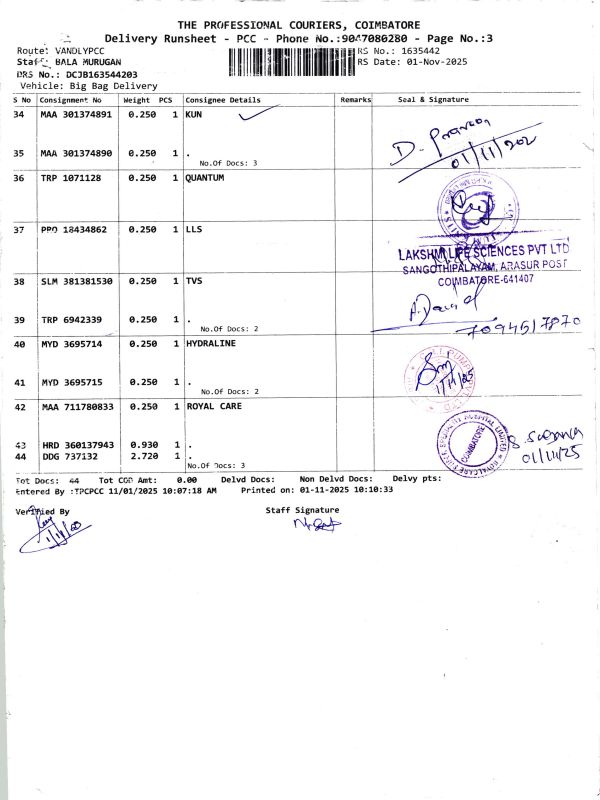 THE PROFESSIONAL COURIERS, COIMBATORE
Delivery Runsheet - PCC - Phone No.:9047080280 - Page No.:3
Route: VANDLYPCC
RS No.: 1635442
Staff: BALA MURUGAN
RS Date: 01-Nov-2025
DRS No.: DCJB163544203
Vehicle: Big Bag Delivery
S No Consignment No Weight PCS Consignee Details Remarks Seal & Signature
34 MAA 301374891 0.250 1 KUN
D.
35 MAA 301374890 0.250 1 .
No.Of Docs: 3
36 TRP 1071128 0.250 1 QUANTUM
37 PRO 18434862 0.250 1 LLS
LAKSHMI LIFE SCIENCES PVT LTD
SANGOTHIPALAYAM, ARASUR POST
COIMBATORE-641407
38 SLM 381381530 0.250 1 TVS
39 TRP 6942339 0.250 1 .
No.Of Docs: 2
7094517870
40 MYD 3695714 0.250 1 HYDRALINE
1/11/25
41 MYD 3695715 0.250 1 .
No.Of Docs: 2
42 MAA 711780833 0.250 1 ROYAL CARE
COIMBATORE
43 HRD 360137943 0.930 1 .
44 DDG 737132 2.720 1 .
01/11/25
No.Of Docs: 3
Tot Docs: 44 Tot COD Amt: 0.00 Delvd Docs: Non Delvd Docs: Delvy pts:
Entered By :TPCPCC 11/01/2025 10:07:18 AM Printed on: 01-11-2025 10:10:33
Verified By
Staff Signature